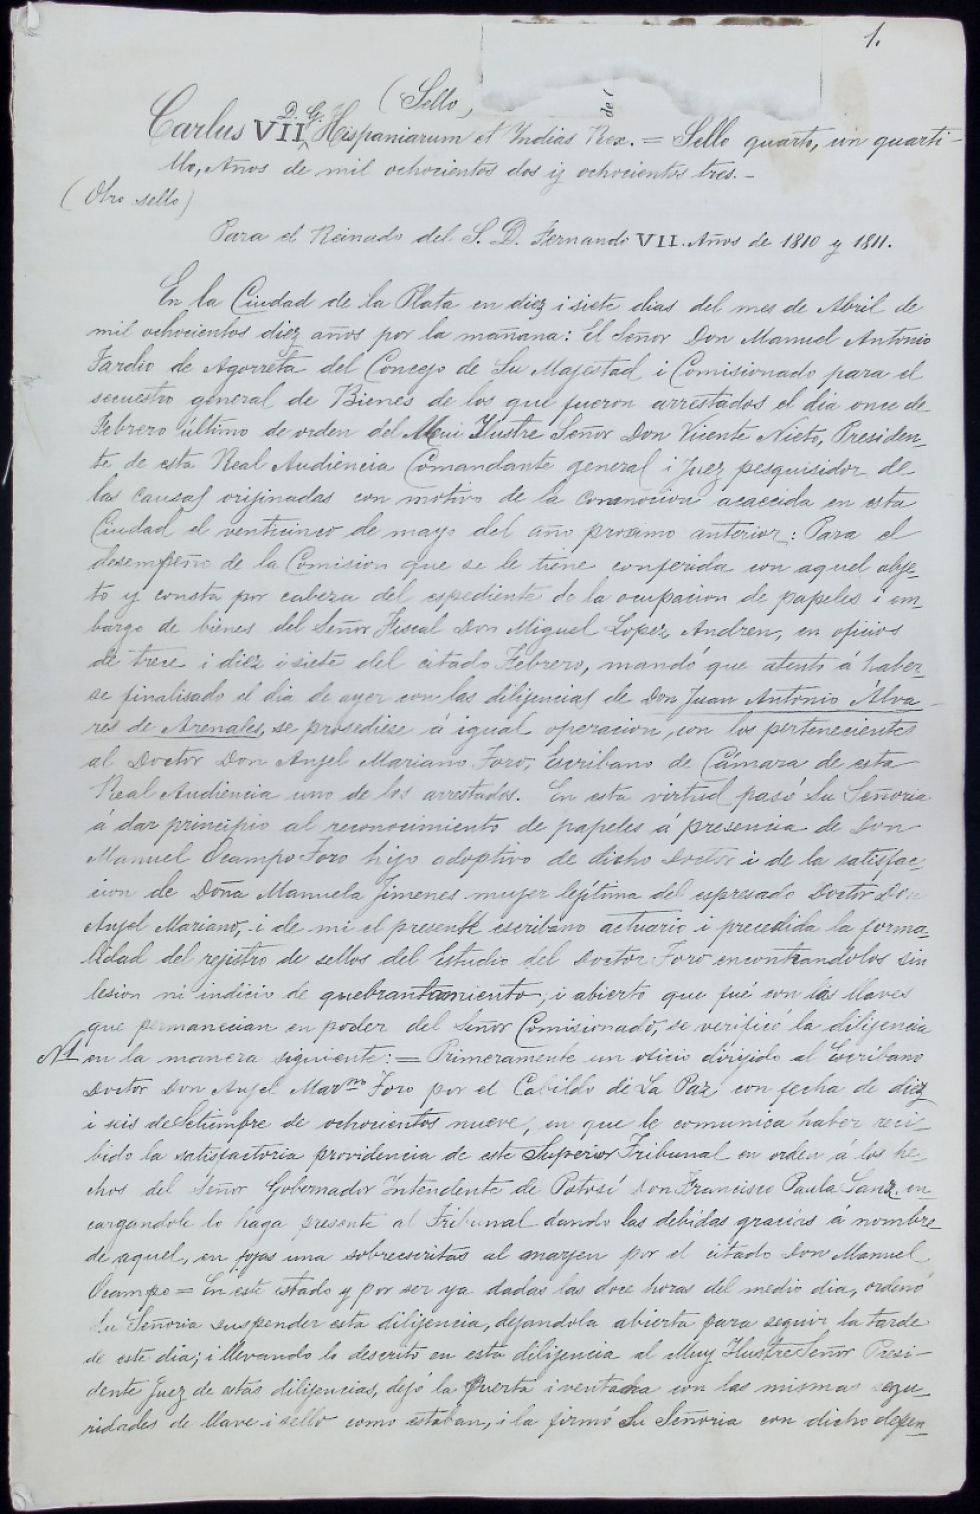 1.
(Sello,
de (
Carlus VII D. G. Hispaniarum et Yndias Rex. = Sello quarto, un quarti-
llo, Años de mil ochocientos dos y ochocientos tres. -
(Otro sello)
Para el Reinado del S. D. Fernando VII. Años de 1810 y 1811.
En la Ciudad de la Plata en diez i siete dias del mes de Abril de
mil ochocientos diez años por la mañana: El Señor Don Manuel Antonio
Tardio de Agorreta del Concejo de Su Majestad i Comisionado para el
secuestro general de Bienes de los que fueron arrestados el dia once de
Febrero último de orden del Mui Ylustre Señor Don Vicente Nieto, Presiden-
te de esta Real Audiencia Comandante general i Juez pesquisidor de
las causas orijinadas con motivo de la conmocion acaecida en esta
Ciudad el venticinco de mayo del año procsimo anterior: Para el
desempeño de la Comision que se le tiene conferida con aquel obje-
to y consta por cabeza del espediente de la ocupacion de papeles i em-
bargo de bienes del Señor Fiscal Don Miguel Lopez Andreu, en oficios
de trece i diez i siete del citado Febrero, mandó que atento á haber-
se finalisado el dia de ayer con las dilijencias de Don Juan Antonio Alva-
res de Arenales, se prosediese á igual operacion, con los pertenecientes
al Doctor Don Anjel Mariano Toro, Escribano de Cámara de esta
Real Audiencia uno de los arrestados. En esta virtud pasó Su Señoria
á dar principio al reconocimiento de papeles á presencia de Don
Manuel Ocampo Toro hijo adoptivo de dicho Doctor i de la satisfac-
cion de Doña Manuela Jimenes mujer lejítima del espresado Doctor Don
Anjel Mariano, i de mi el presente escribano actuario i precedida la forma-
lidad del rejistro de sellos del Estudio del Doctor Toro encontrandolos sin
lesion ni indicio de quebrantamiento, i abierto que fué con las llaves
que permanecian en poder del Señor Comisionado, se verificó la dilijencia
N1 en la manera siguiente: = Primeramente un oficio dirijido al Escribano
Doctor Don Anjel Marno Toro por el Cabildo de La Paz con fecha de diez
i seis de Setiembre de ochocientos nueve, en que le comunica haber reci-
bido la satisfactoria providencia de este Superior Tribunal en orden á los he-
chos del Señor Gobernador Intendente de Potosí Don Francisco Paula Sanz, en-
cargandole lo haga presente al Tribunal dando las debidas gracias á nombre
de aquel, en fojas una sobrescritas al marjen por el citado Don Manuel
Ocampo = En este estado y por ser ya dadas las doce horas del medio dia, ordenó
Su Señoria suspender esta dilijencia, dejandola abierta para seguir la tarde
de este dia; i llevando lo descrito en esta dilijencia al Muy Ilustre Señor Presi-
dente Juez de estas dilijencias, dejó la puerta i ventana con las mismas segu-
ridades de llave i sello como estaban, i la firmó Su Señoria con dicho depen-